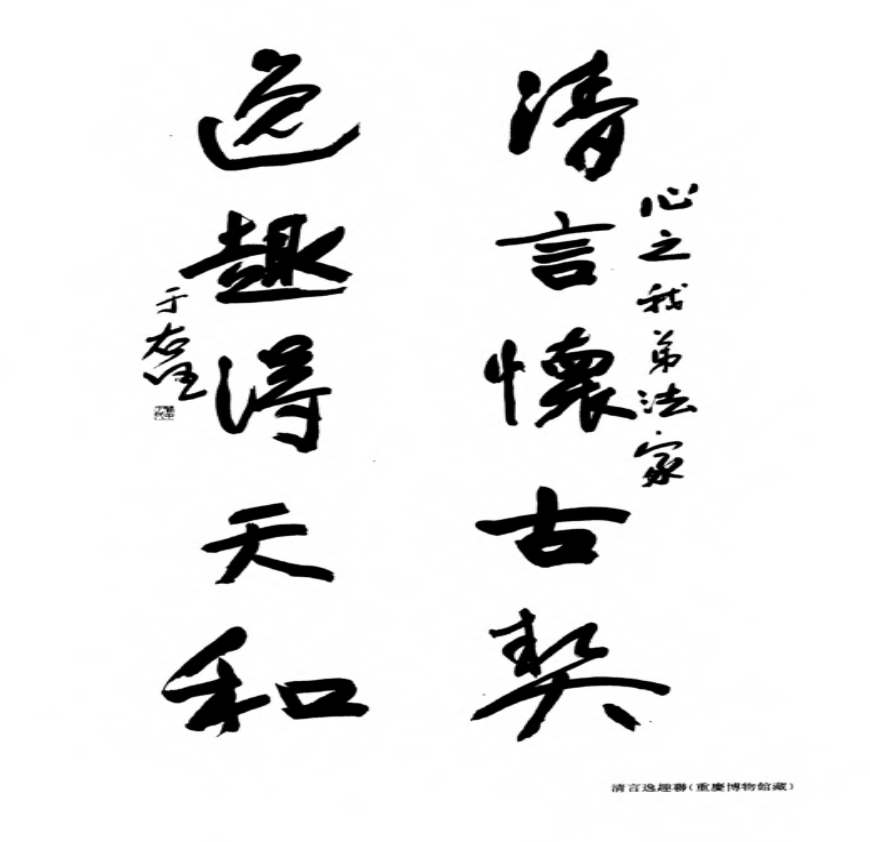 心之我弟法家
清言懷古契
逸趣得天和
于右任
清言逸趣聯(重慶博物館藏)